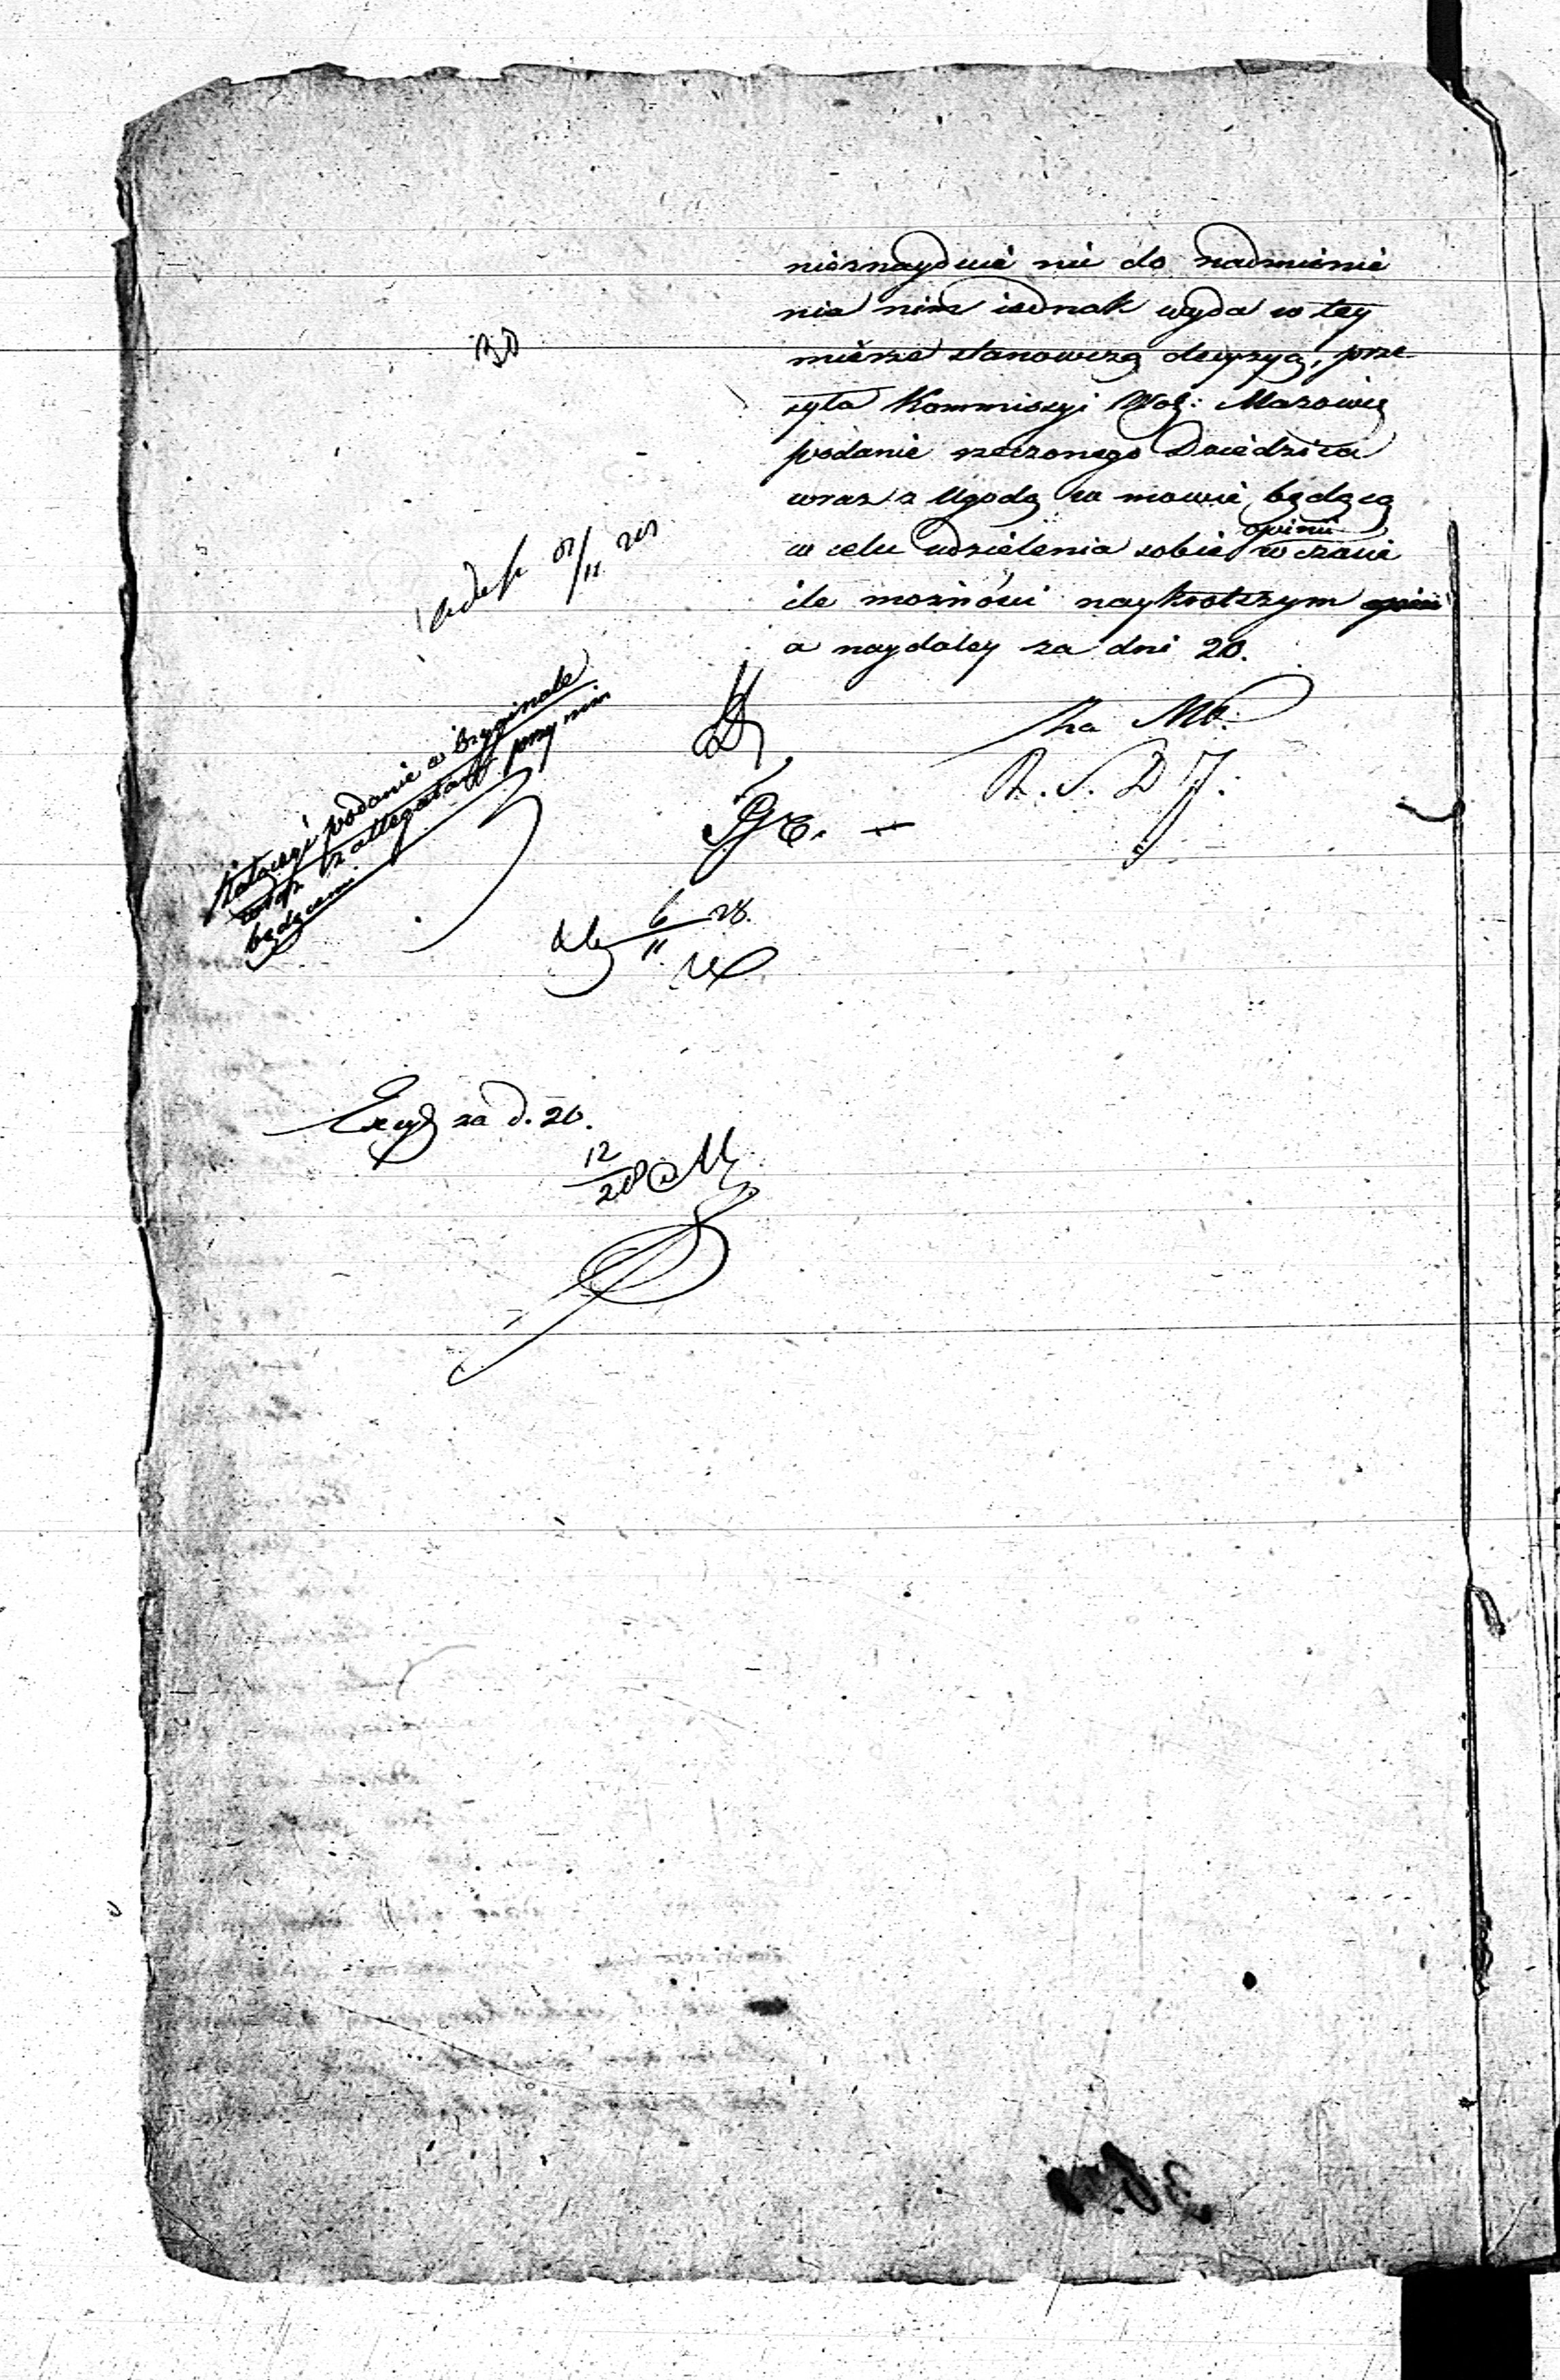 nieznayduie nic do nadmienie
nia nim iednak wyda w tey
mierze stanowczą decyzyą, prze
syła Kommissyi Woj: Mazowię
podanie rzeczonego Dziedzica
wraz z Ugodą w mowie będącą
opinii
w celu udzielenia sobie w czasie
ile możności naykrotszym
a naydaley za dni 20.
Za Mb.
R. S. D J.
Załączyć podanie w oryginale
wraz z allegatami przy nim
będącemi
6/11 28.
Excyt za d. 20.
12/20